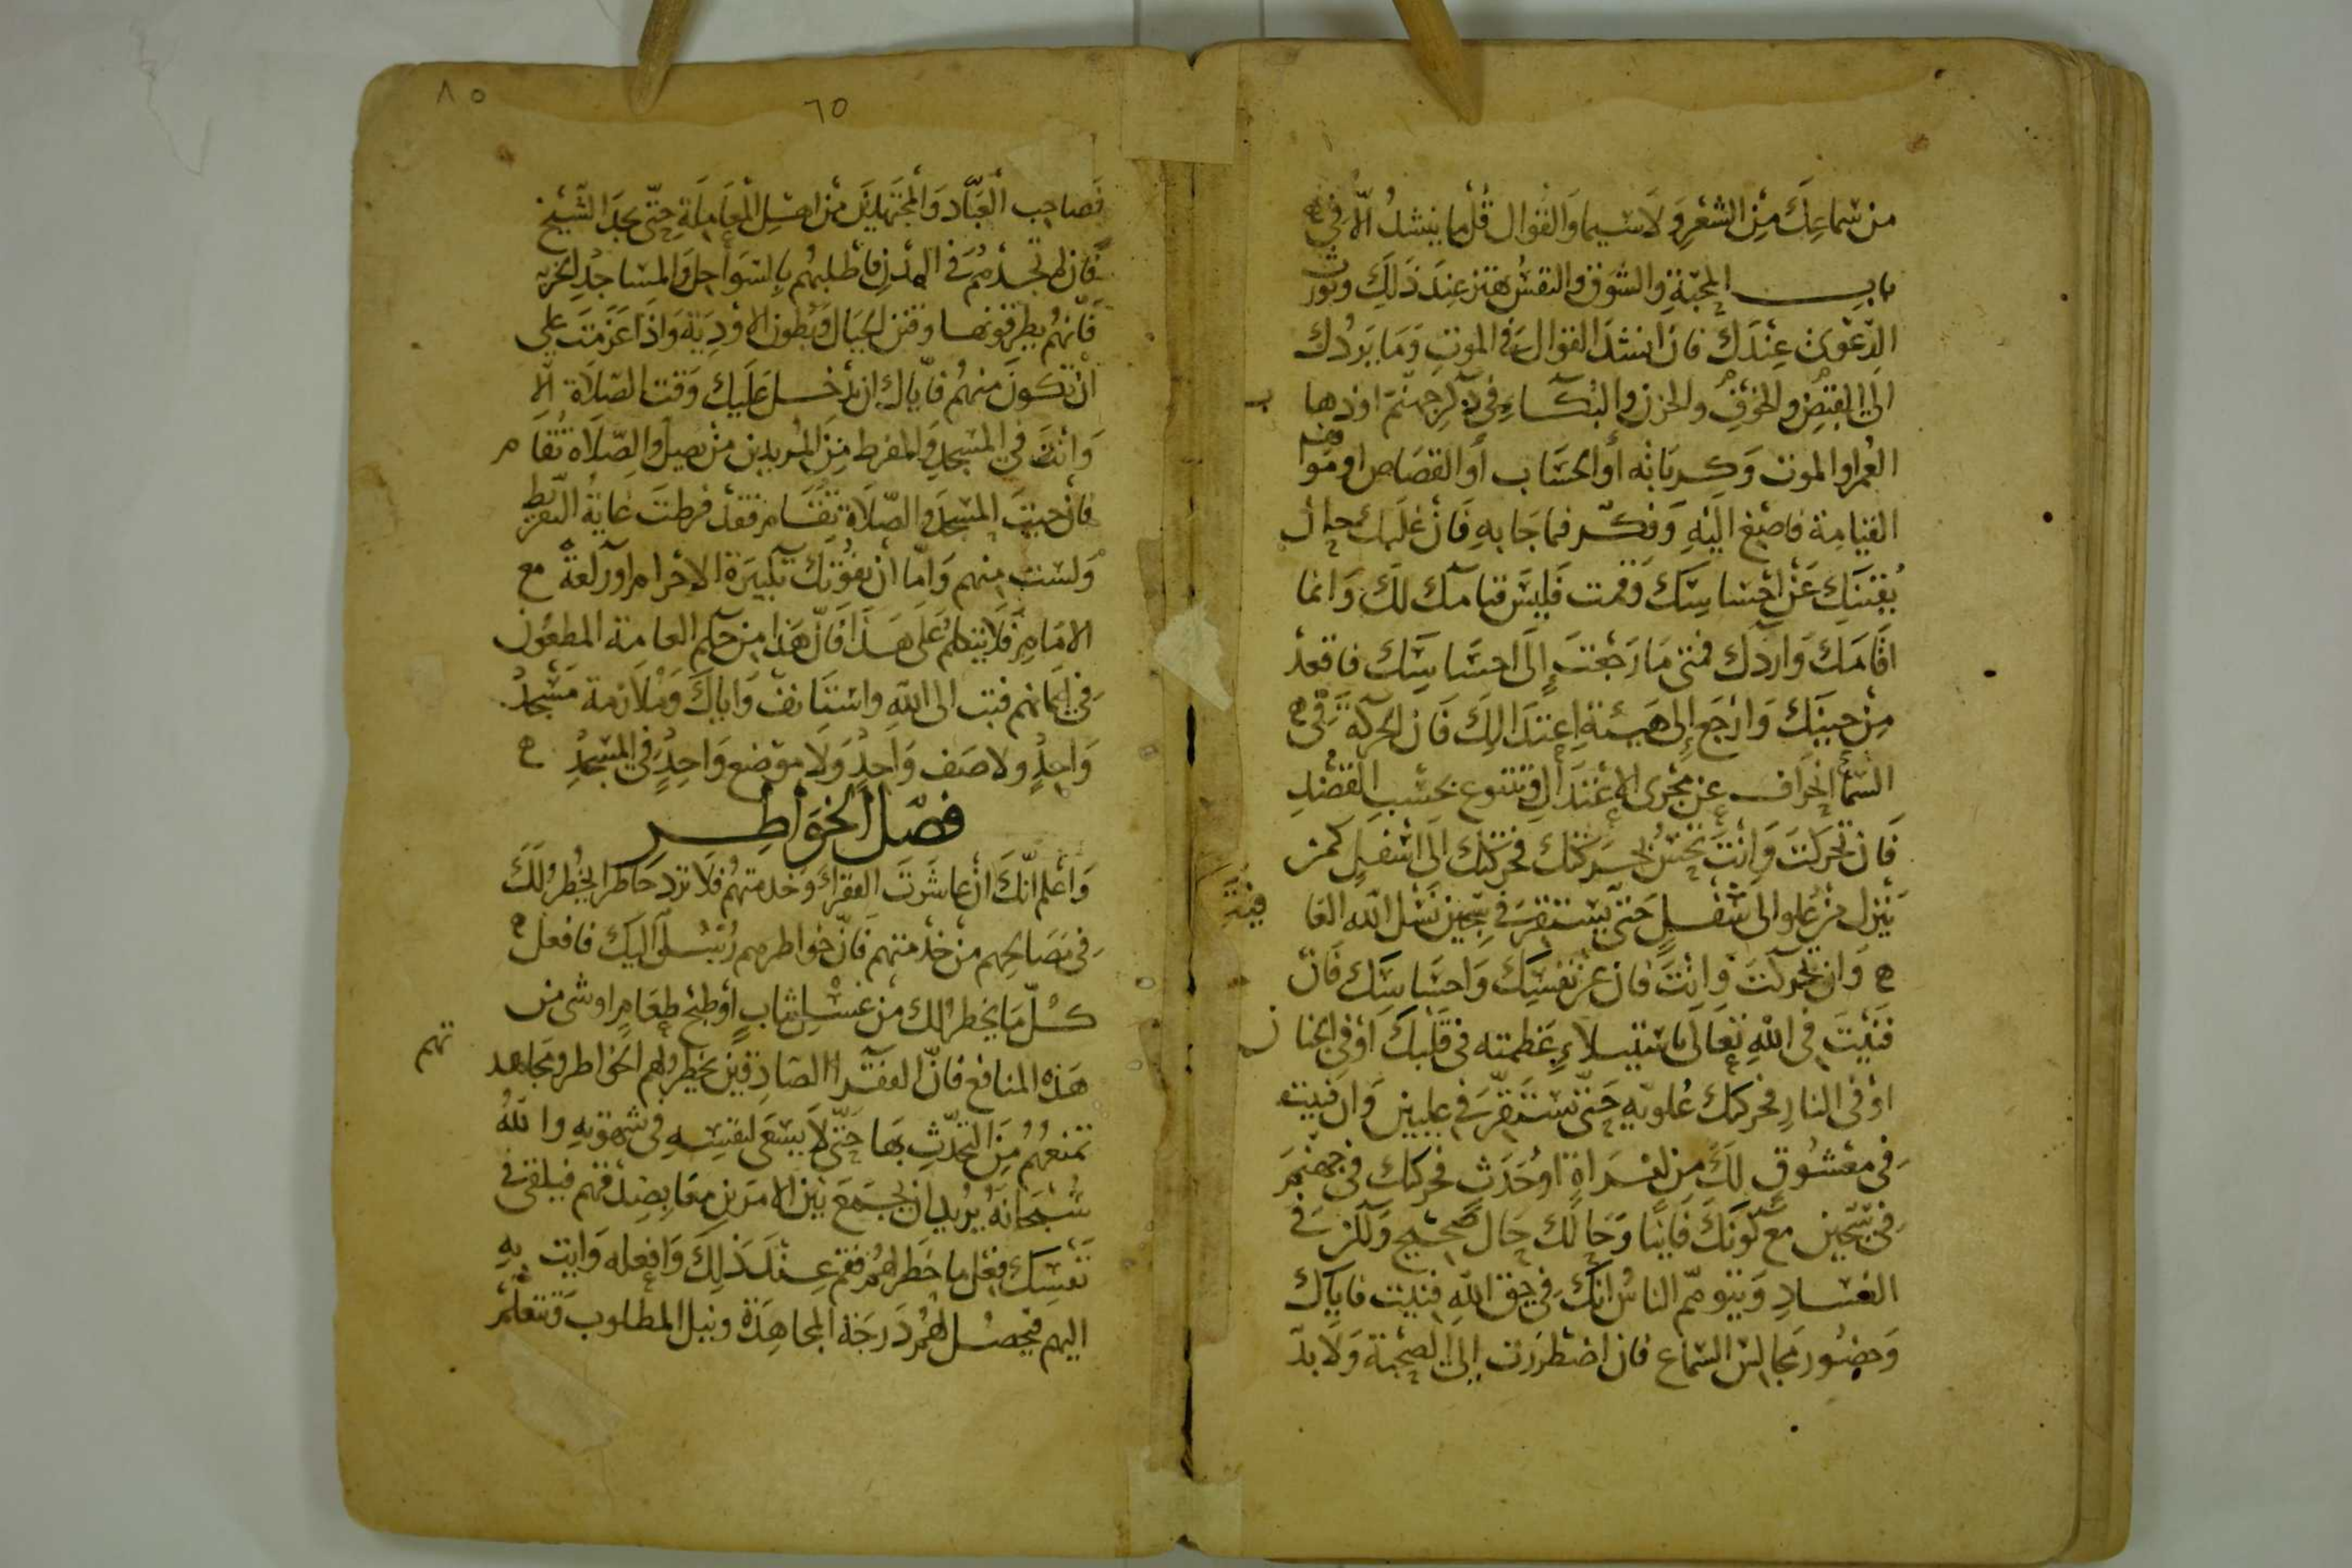 من سماعك من الشعر ولا سيما والقوال قل ما ينشد الا في
باب المحبة والشوق والنفس تهتز عند ذلك وتورث
الدعوى عندك فان انشد القوال في الموت وما يردك
الى القبض والخوف والحزن والبكاء في ذكر جهنم او ذهاب
العمر او الموت وكرباته او الحساب او القصاص او مواقف
القيامة فاصغ اليه وفكر فيما جا به فان غلبك حال
يفنيك عن احساسك وقمت فليس قيامك لك وانما
اقامك واردك فمتى ما رجعت الى احساسك فاقعد
من حينك وارجع الى هيئة اعتدالك فان الحركة في
السماع انحراف عن مجرى الاعتدال وتتنوع بحسب القصد
فان تحركت وانت تحس بحركتك فحركتك الى اسفل كمن
ينزل من علو الى سفل حتى يستقر في سجين نسل الله العافية
وان تحركت وانت فان عن نفسك واحساسك فان
فنيت في الله تعالى باستيلاء عظمته في قلبك او في الجنان
او في النار فحركتك علويه حتى تستقر في عليين وان فنيت
في معشوق لك من امراة او حدث فحركتك في جهنم
في سجين مع كونك فانيا وحالك حال صحيح ولكن في
الفساد ويتوهم الناس انك في حق الله فنيت فاياك
وحضور مجالس السماع فان اضطررت الى الصحبة ولا بد
٨٥
٦٥
فصاحب العباد والمجتهدين من اهل المعاملة حتى تجد الشيخ
فان لم تجدهم في المدن فاطلبهم بالسواحل والمساجد الخربه
فانهم يطرقونها وقنن الجبال وبطون الاودية واذا عزمت على
ان تكون منهم فاياك ان يدخل عليك وقت الصلاة الا
وانت في المسجد والمفرط من المريدين من يصل والصلاة تقام
فان جيت المسجد والصلاة تقام فقد فرطت غاية التفريط
ولست منهم واما ان تفوتك تكبيرة الاحرام او ركعة مع
الامام فلا يتكلم على هذا فان هذا من حكم العامة المطعون
في ايمانهم فتب الى الله واستانف واياك وملازمة مسجد
واحد ولا صف واحد ولا موضع واحد في المسجد
فصل الخواطر
واعلم انك ان عاشرت الفقرا وخدمتهم فلا ترد خاطرا يخطر لك
في مصالحهم من خدمتهم فان خواطرهم رسل اليك فافعل
كل ما يخطر لك من غسل ثياب او طبخ طعام او شى من
هذه المنافع فان الفقرا الصادقين يخطر لهم الخواطر ومجاهدتهم
تمنعهم من التحدث بها حتى لا يسعى لنفسه في شهوته والله
سبحانه يريد ان يجمع بين الامرين معا بصدقهم فيلقى في
نفسك فعل ما خطر لهم فقم عند ذلك وافعله وايت به
اليهم فيحصل لهم درجة المجاهدة ونيل المطلوب وتتعلم